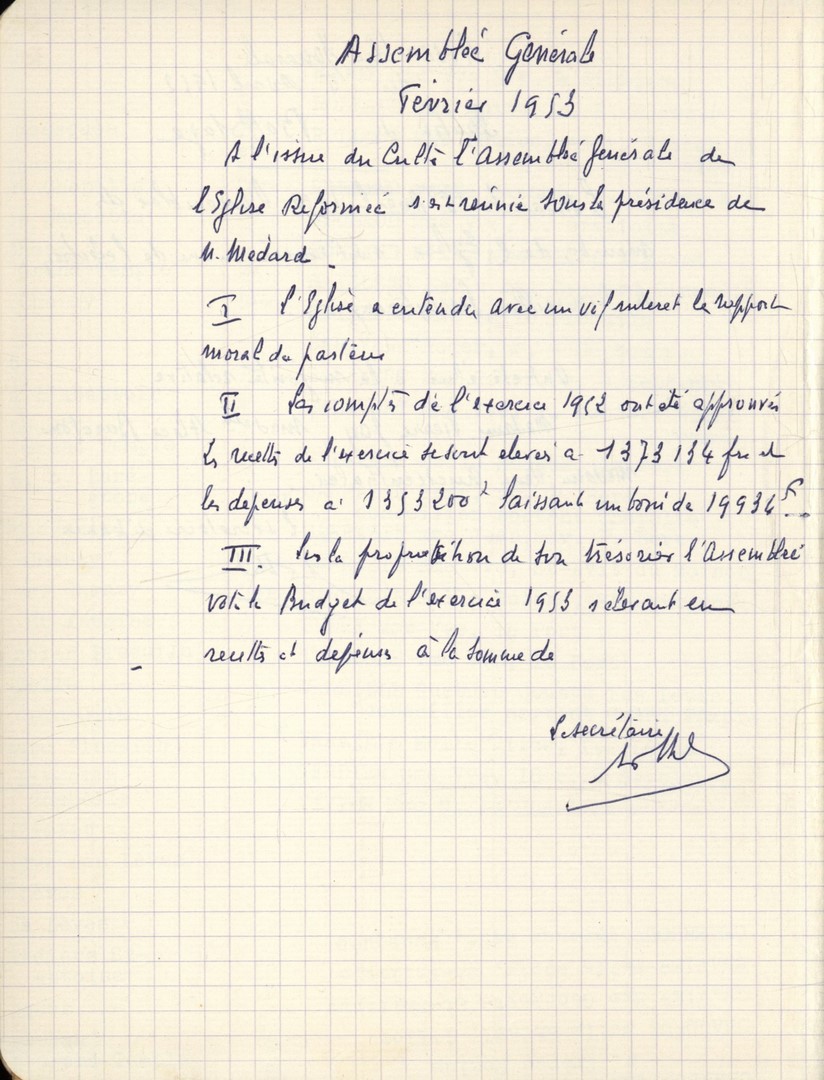 Assemblée Générale
Février 1953
A l'issue du Culte l'Assemblée générale de
l'Eglise Reformée s'est reunie sous la présidence de
M. Medard.
I l'Eglise a entendu avec un vif interet le rapport
moral du pasteur
II Les comptes de l'exercice 1952 ont été approuvés
Les recettes de l'exercice se sont elevés a 1373134 frs et
les depenses a 1353200 f laissant un boni de 19934 f.
III. Sur la proposition de son trésorier l'Assemblée
vote le Budget de l'exercice 1953 s'elevant en
recettes et dépenses à la somme de
Le secrétaire